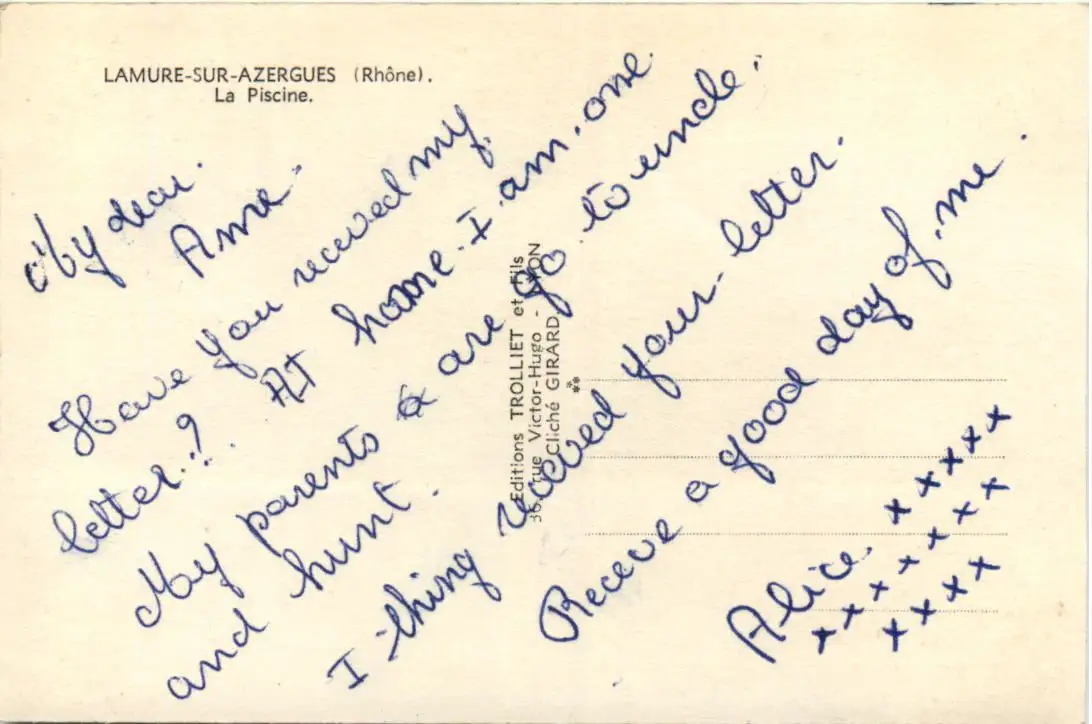 LAMURE-SUR-AZERGUES (Rhône).
La Piscine.
My dear.
Anne.
Have you received my
letter.? At home. I am. one.
My parents are go to uncle.
and hunt.
I thing received your letter.
Receve a good day of me.
Alice.
+ + + + +
+ + + + + + +
+ + + +
Editions TROLLIET et Fils
36, rue Victor-Hugo - LYON
Cliché GIRARD